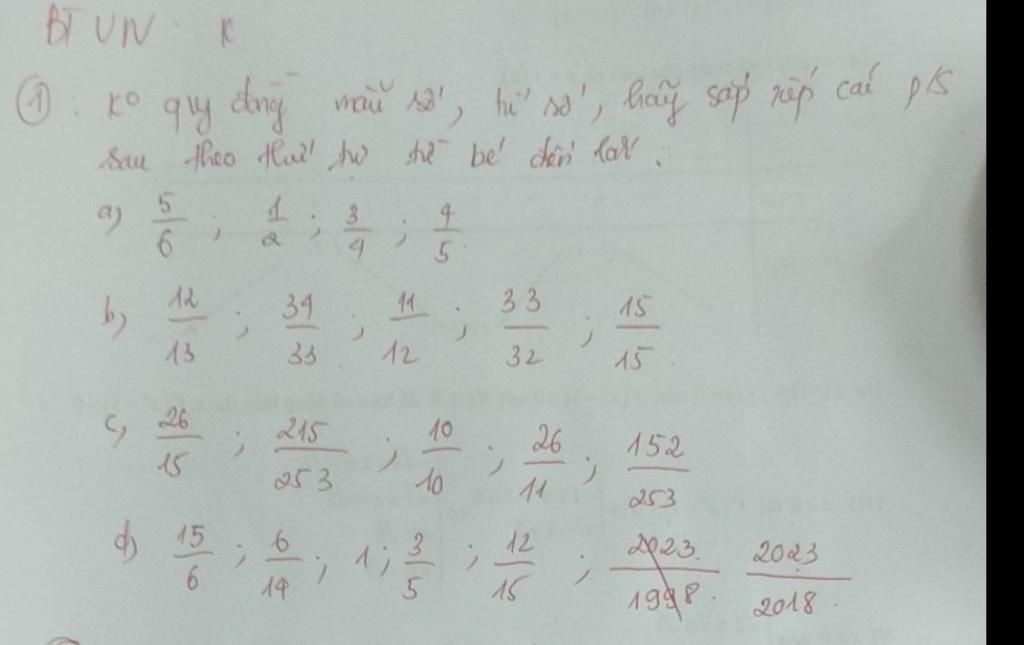 BTVN. K
①: Ko quy đồng mẫu số, tử số, hãy sắp xếp các p/s
sau theo thứ tự từ bé đến lớn.
a) 5/6 ; 1/2 ; 3/4 ; 4/5
b) 12/13 ; 34/33 ; 11/12 ; 33/32 ; 15/15
c) 26/15 ; 215/253 ; 10/10 ; 26/11 ; 152/253
d) 15/6 ; 6/14 ; 1 ; 3/5 ; 12/15 ; 2023/1998 2023/2018